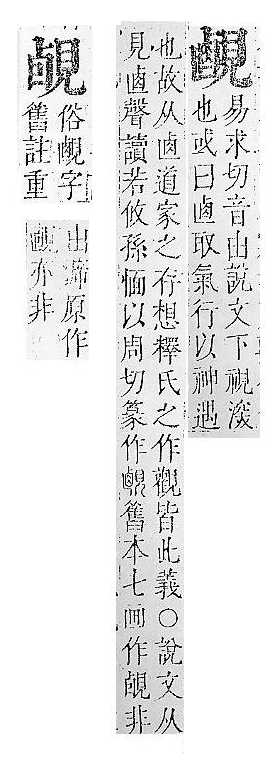 䚃
易求切音由說文下視深
也或曰卥取氣行以神遇
也故从卥道家之存想釋氏之作觀皆此義○說文从
見卥聲讀若攸孫愐以周切篆作䚃舊本七畫作非
俗䚃字
舊註重
出原作
亦非